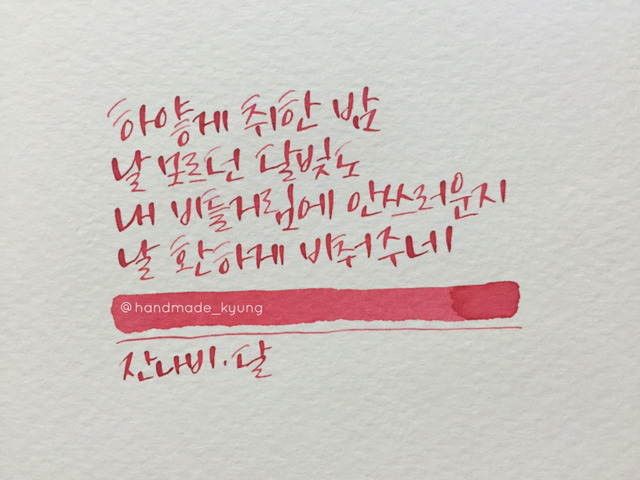 하얗게 취한 밤
날 모르던 달빛도
내 비틀거림에 안쓰러운지
날 환하게 비춰주네
@handmade_kyung
잔나비·달